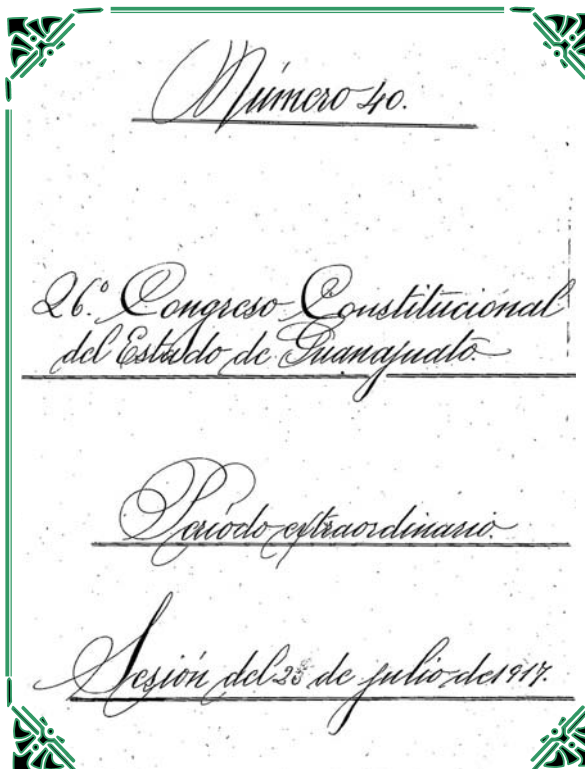 Número 40.
26.º Congreso Constitucional
del Estado de Guanajuato
Período extraordinario.
Sesión del 23 de julio de 1917.